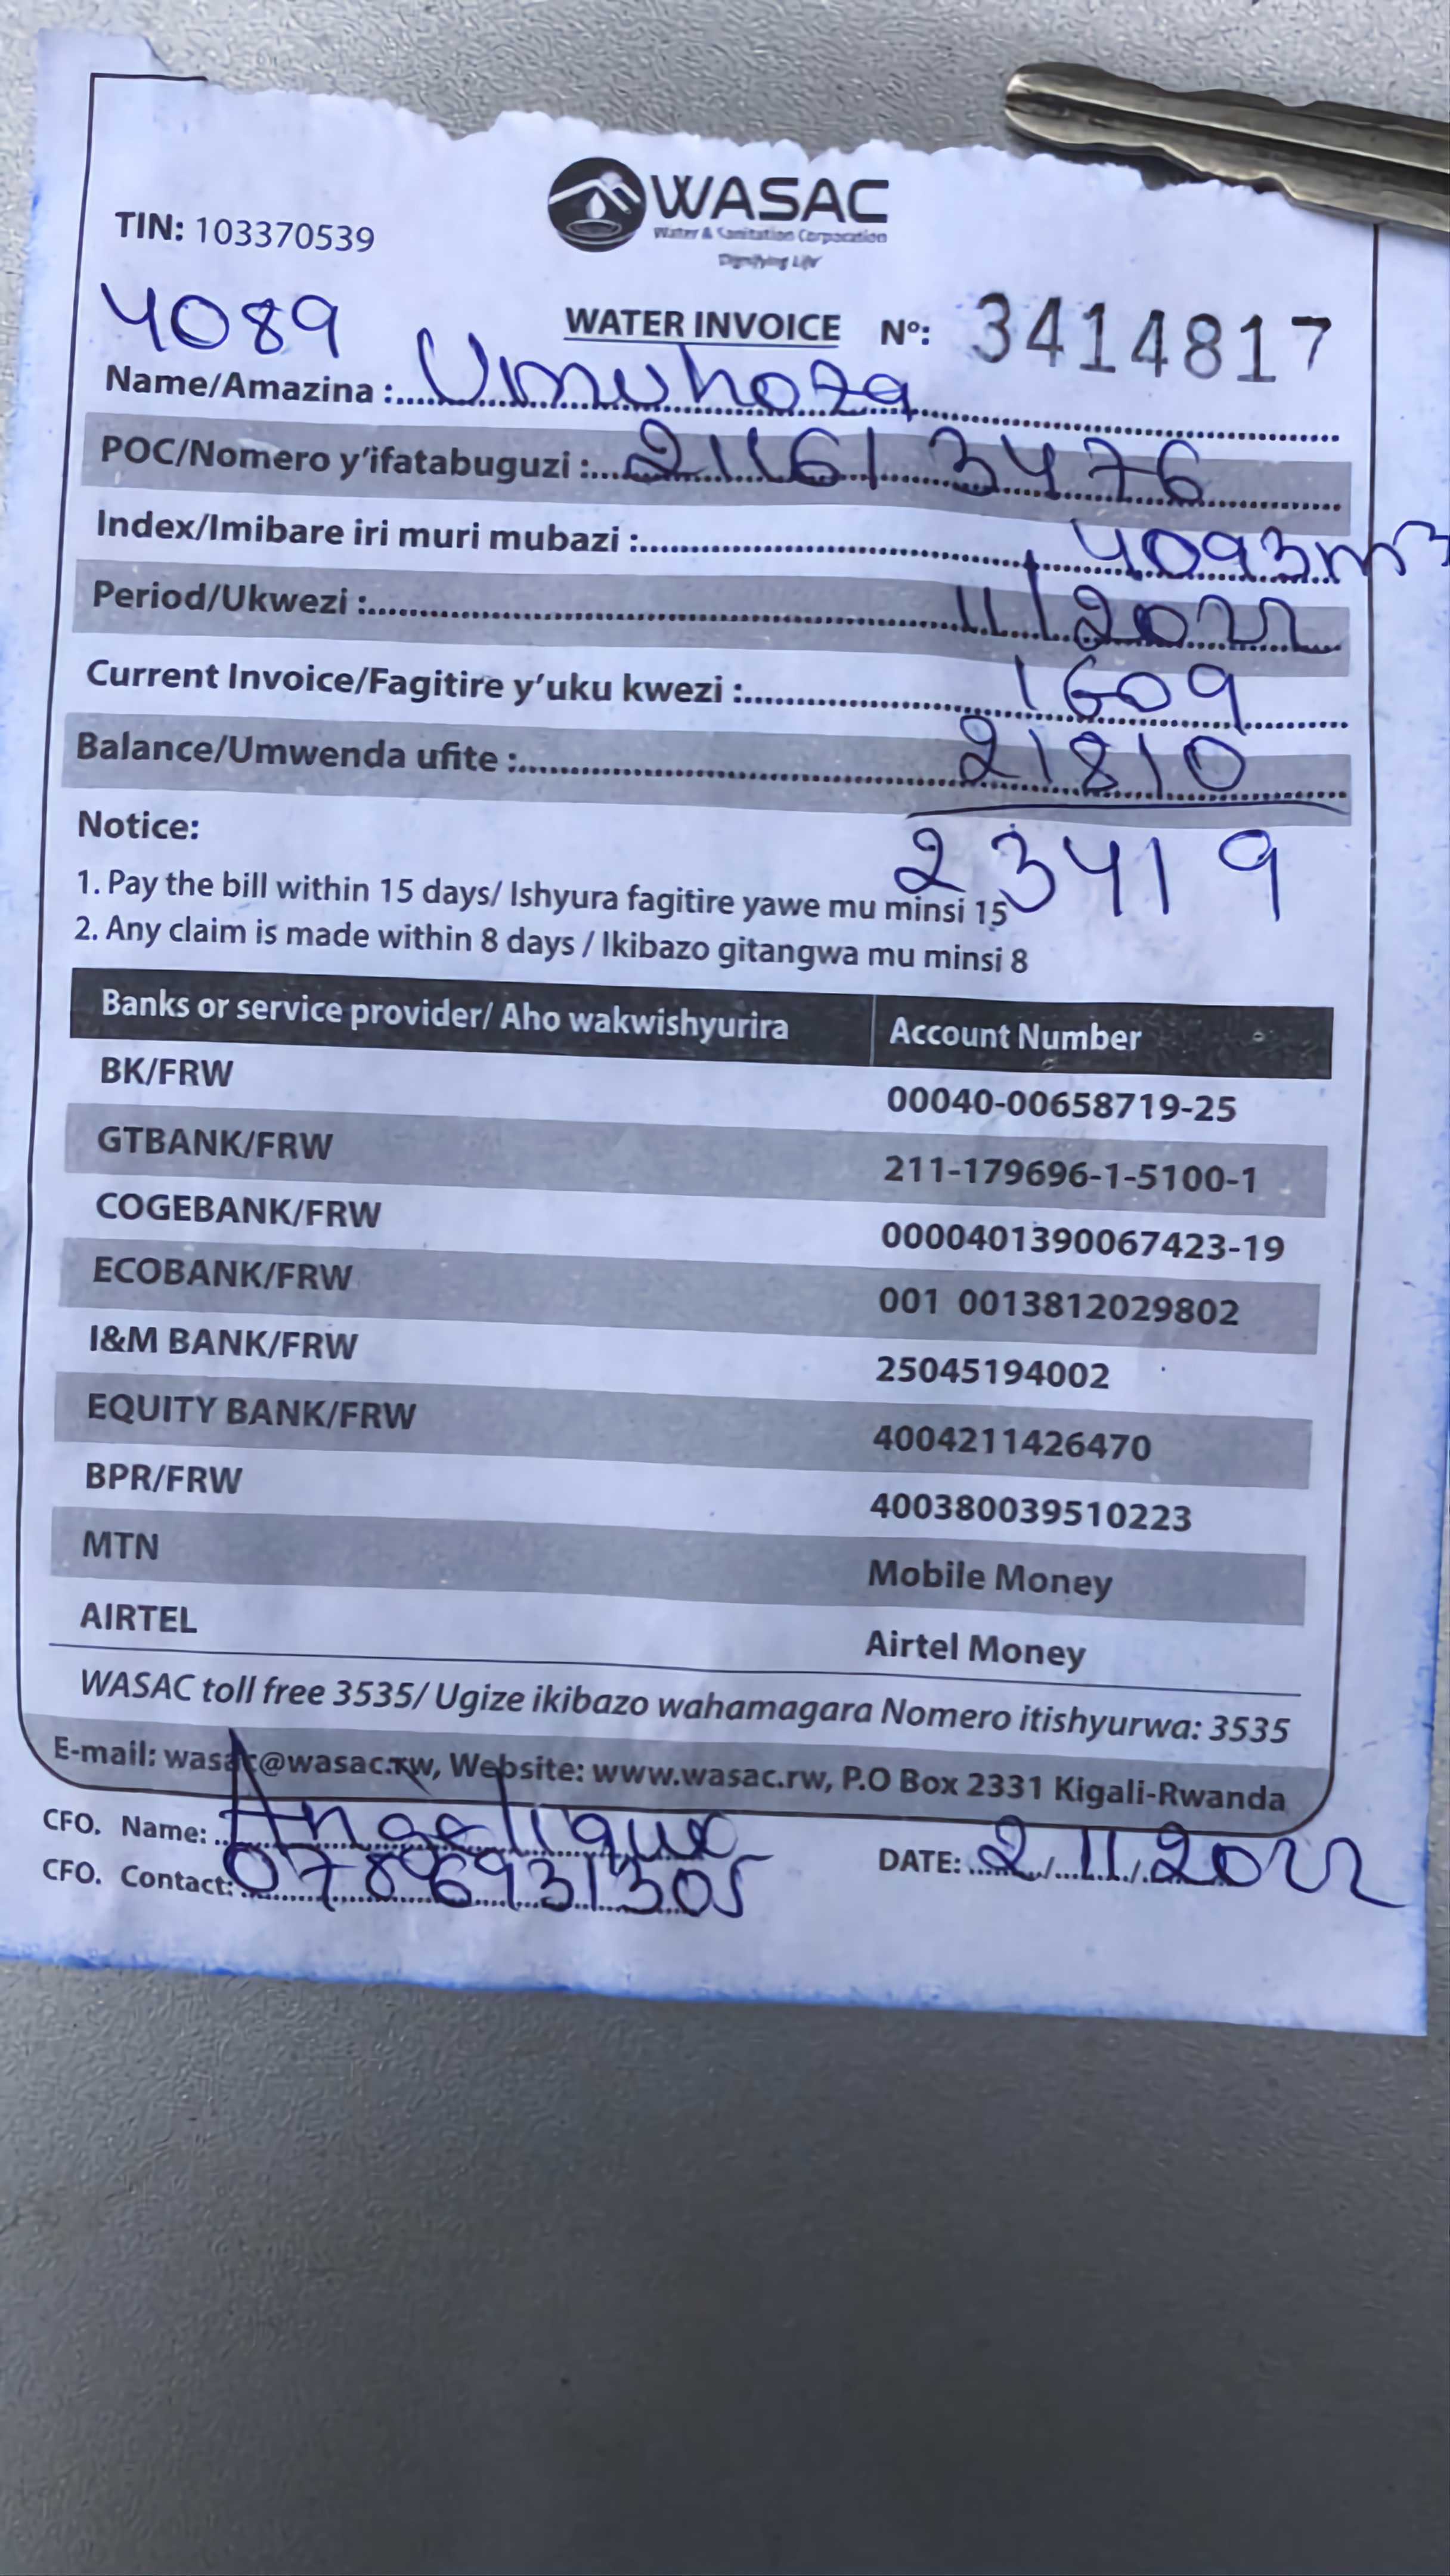 WASAC
Water & Sanitation Corporation
Dignifying Life
TIN: 103370539
4089
WATER INVOICE Nº: 3414817
Name/Amazina : Umuhoza
POC/Nomero y'ifatabuguzi : 211613476
Index/Imibare iri muri mubazi : 4093m³
Period/Ukwezi : 11/2022
Current Invoice/Fagitire y'uku kwezi : 1609
Balance/Umwenda ufite : 21810
23419
Notice:
1. Pay the bill within 15 days/ Ishyura fagitire yawe mu minsi 15
2. Any claim is made within 8 days / Ikibazo gitangwa mu minsi 8
Banks or service provider/ Aho wakwishyurira Account Number
BK/FRW 00040-00658719-25
GTBANK/FRW 211-179696-1-5100-1
COGEBANK/FRW 0000401390067423-19
ECOBANK/FRW 001 0013812029802
I&M BANK/FRW 25045194002
EQUITY BANK/FRW 4004211426470
BPR/FRW 400380039510223
MTN Mobile Money
AIRTEL Airtel Money
WASAC toll free 3535/ Ugize ikibazo wahamagara Nomero itishyurwa: 3535
E-mail: wasac@wasac.rw, Website: www.wasac.rw, P.O Box 2331 Kigali-Rwanda
CFO. Name: Angelique
DATE: 2/11/2022
CFO. Contact: 07896931305